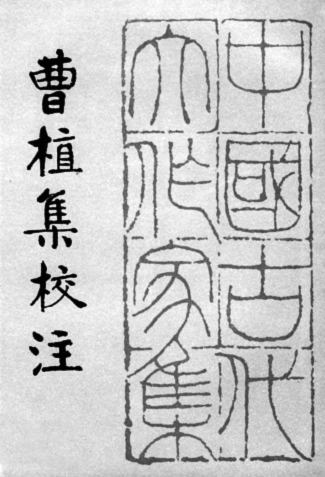 中國古代
大作家集
曹植集校注